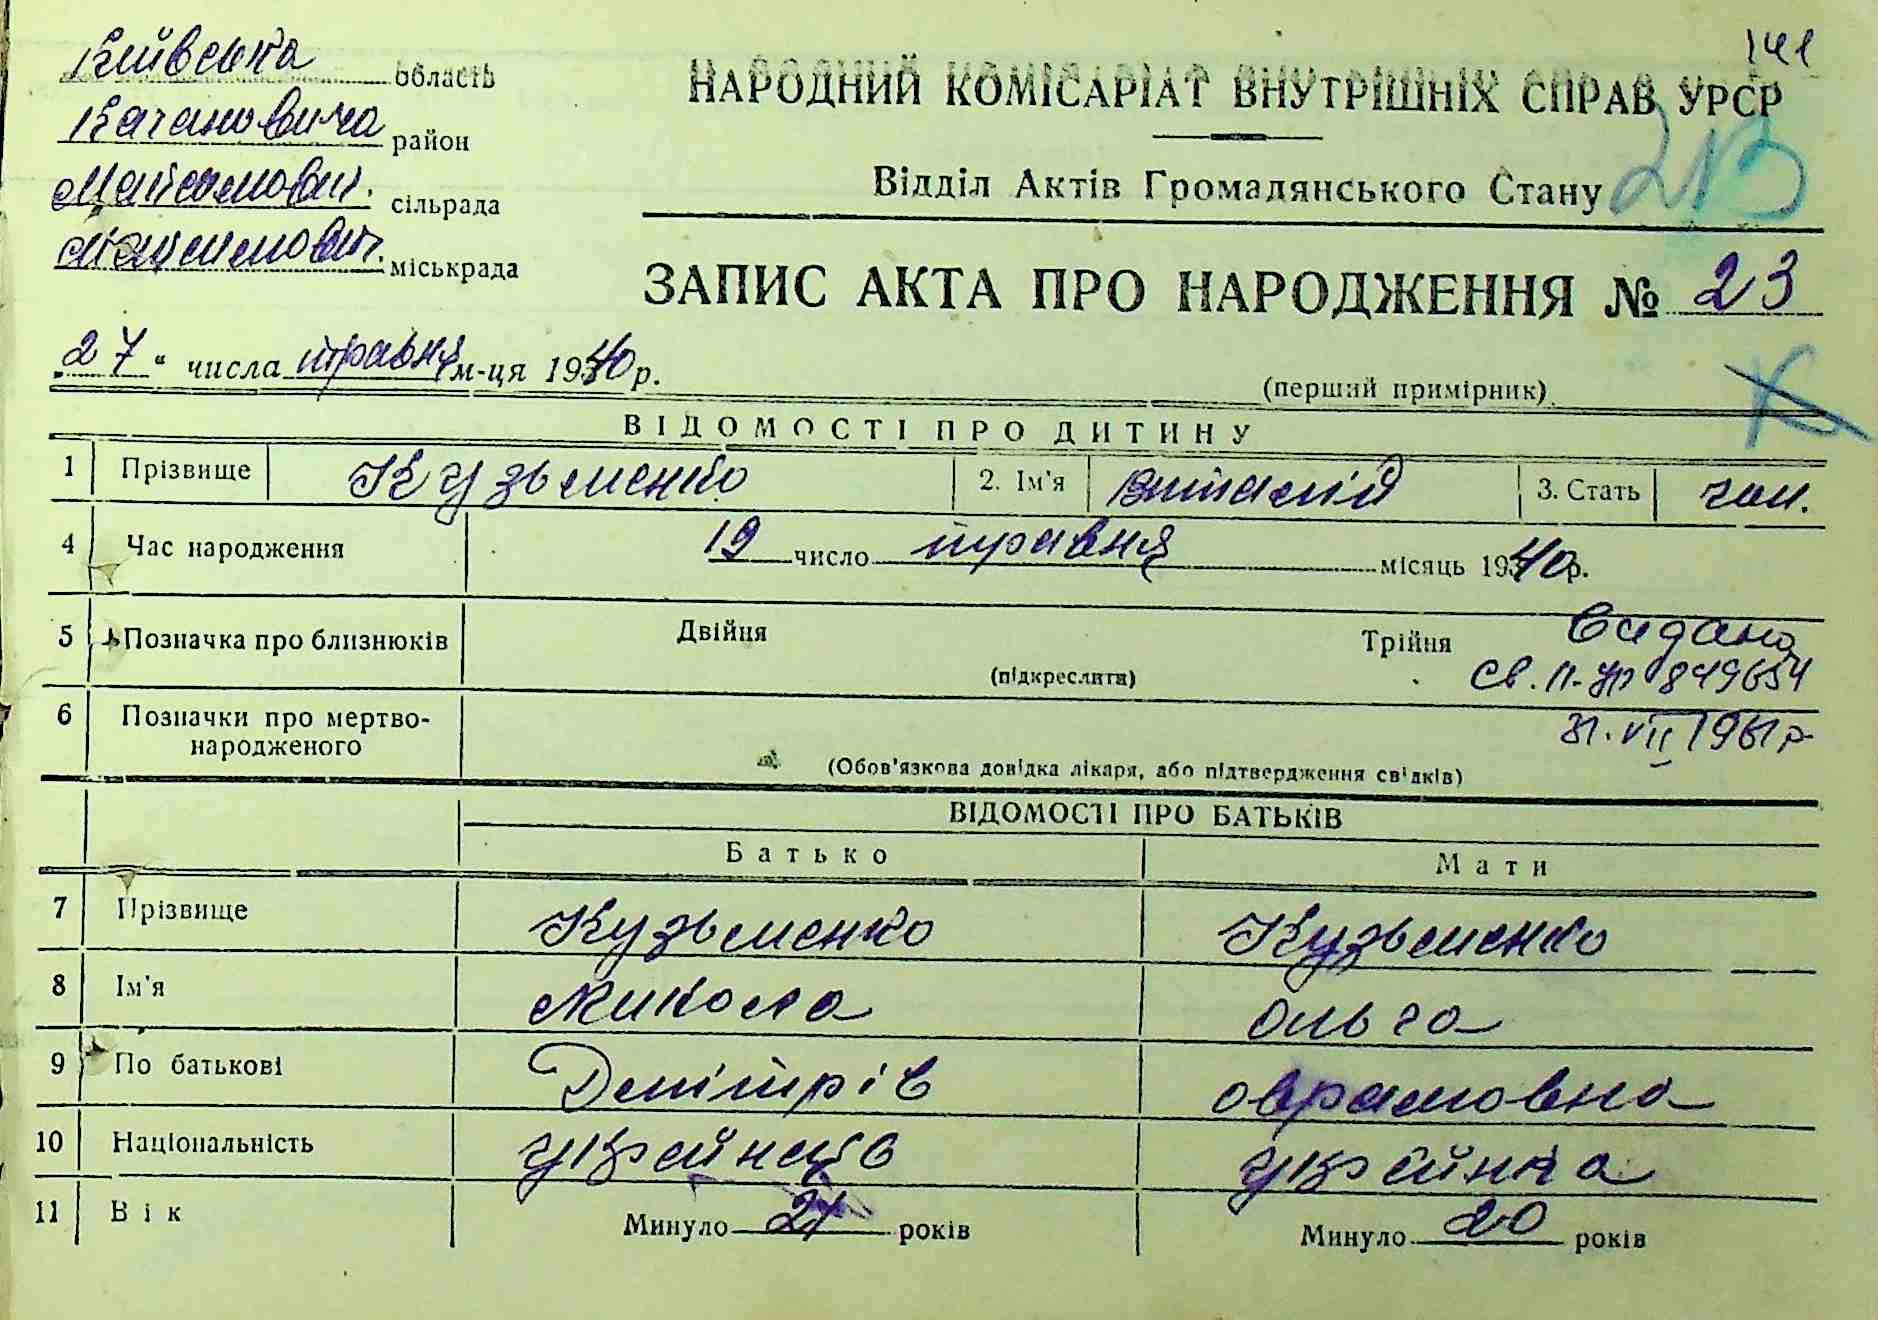 141
Київська область
Кагановича район
сільрада
міськрада
НАРОДНИЙ КОМІСАРІАТ ВНУТРІШНІХ СПРАВ УРСР
Відділ Актів Громадянського Стану
ЗАПИС АКТА ПРО НАРОДЖЕННЯ № 23
„27“ числа травня м-ця 1940 р.
(перший примірник).
ВІДОМОСТІ ПРО ДИТИНУ
1 Прізвище Кузьменко 2. Ім'я Віталій 3. Стать чол.
4 Час народження 19 число травня місяць 1940 р.
5 Позначка про близнюків Двійня Трійня
(підкреслити)
Видано
св. II-УР 849654
31.VII 1961 р
6 Позначки про мертво-
народженого
(Обов'язкова довідка лікаря, або підтвердження свідків)
ВІДОМОСТІ ПРО БАТЬКІВ
Батько Мати
7 Прізвище Кузьменко Кузьменко
8 Ім'я Микола Ольга
9 По батькові Дмітрів Оврамовна
10 Національність українець українка
11 Вік Минуло 21 років Минуло 20 років